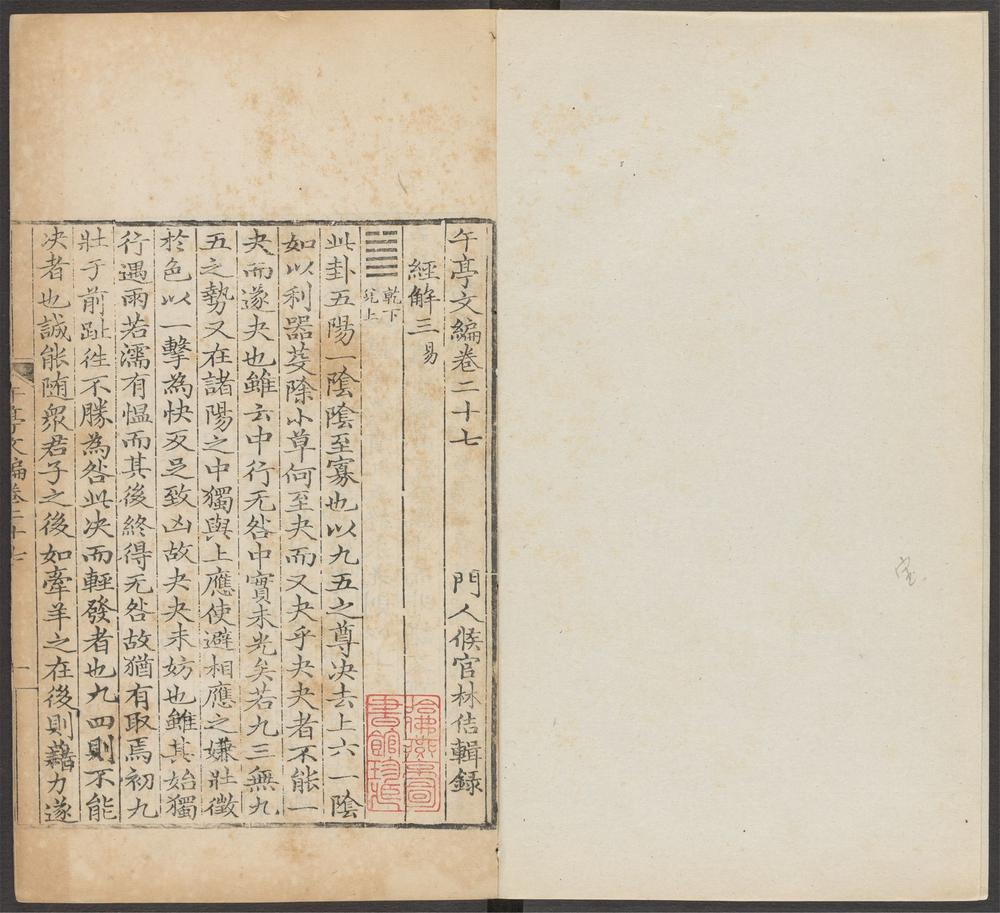 午亭文編卷二十七
門人候官林佶輯錄
經解三 易
乾下
兊上
此卦五陽一陰陰至寡也以九五之尊决去上六一陰
如以利器芟除小草何至夬而又夬乎夬夬者不能一
夬而遂夬也雖云中行无咎中實未光矣若九三無九
五之勢又在諸陽之中獨與上應使避相應之嫌壯徵
於色以一擊為快反足致凶故夬夬未妨也雖其始獨
行遇雨若濡有愠而其後終得无咎故猶有取焉初九
壯于前趾徃不勝為咎此决而輕發者也九四則不能
决者也誠能随衆君子之後如牽羊之在後則藉力遂
午亭文編卷二十七
一
哈佛燕京圖
書館珍藏